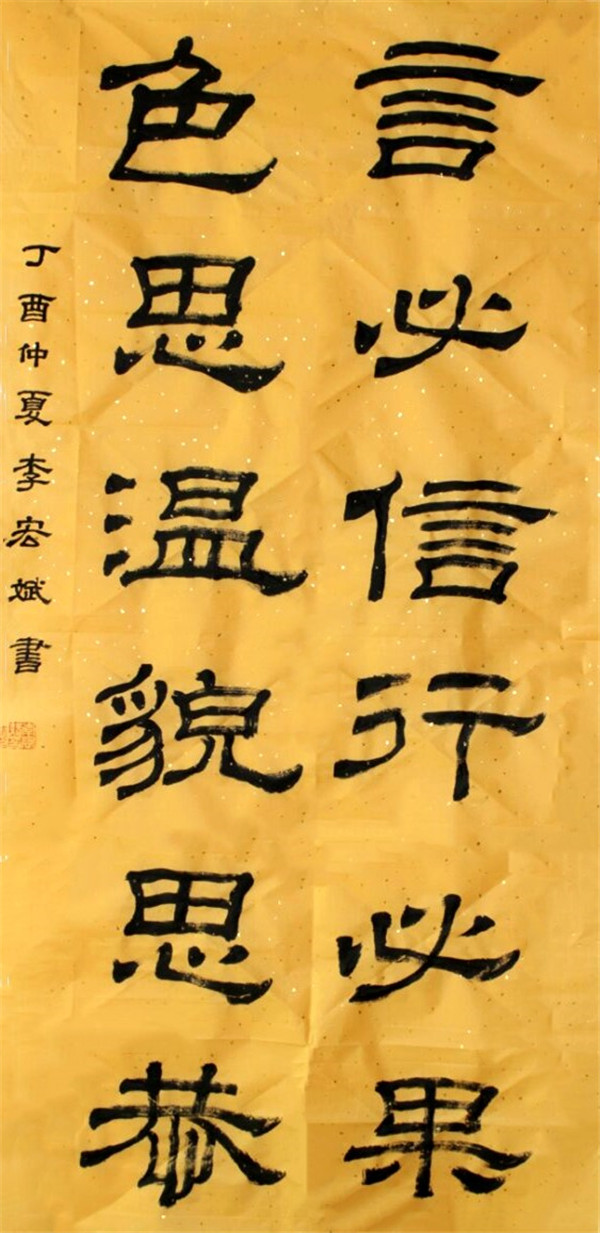 言必信行必果
色思温貌思恭
丁酉仲夏李宏斌书